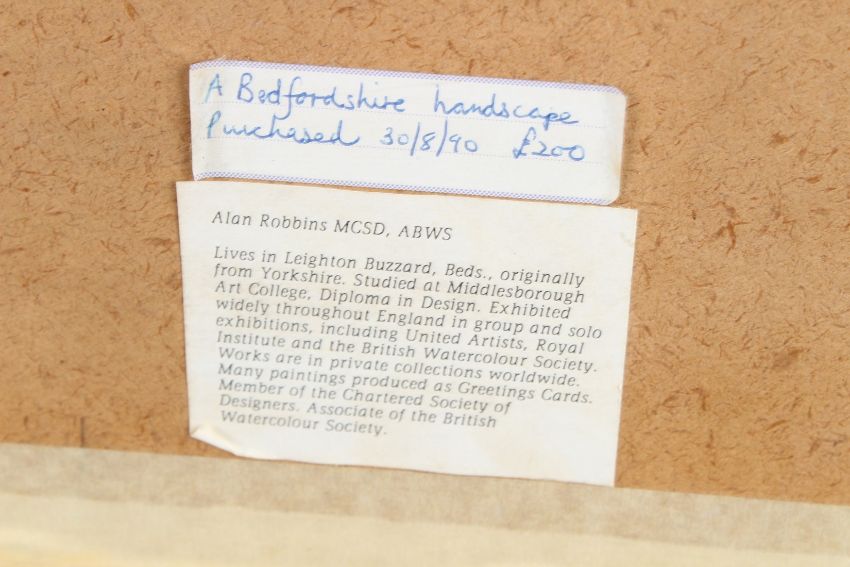 A Bedfordshire handscape
Purchased 30/8/90 £200
Alan Robbins MCSD, ABWS
Lives in Leighton Buzzard, Beds., originally
from Yorkshire. Studied at Middlesborough
Art College, Diploma in Design. Exhibited
widely throughout England in group and solo
exhibitions, including United Artists, Royal
Institute and the British Watercolour Society.
Works are in private collections worldwide.
Many paintings produced as Greetings Cards.
Member of the Chartered Society of
Designers. Associate of the British
Watercolour Society.